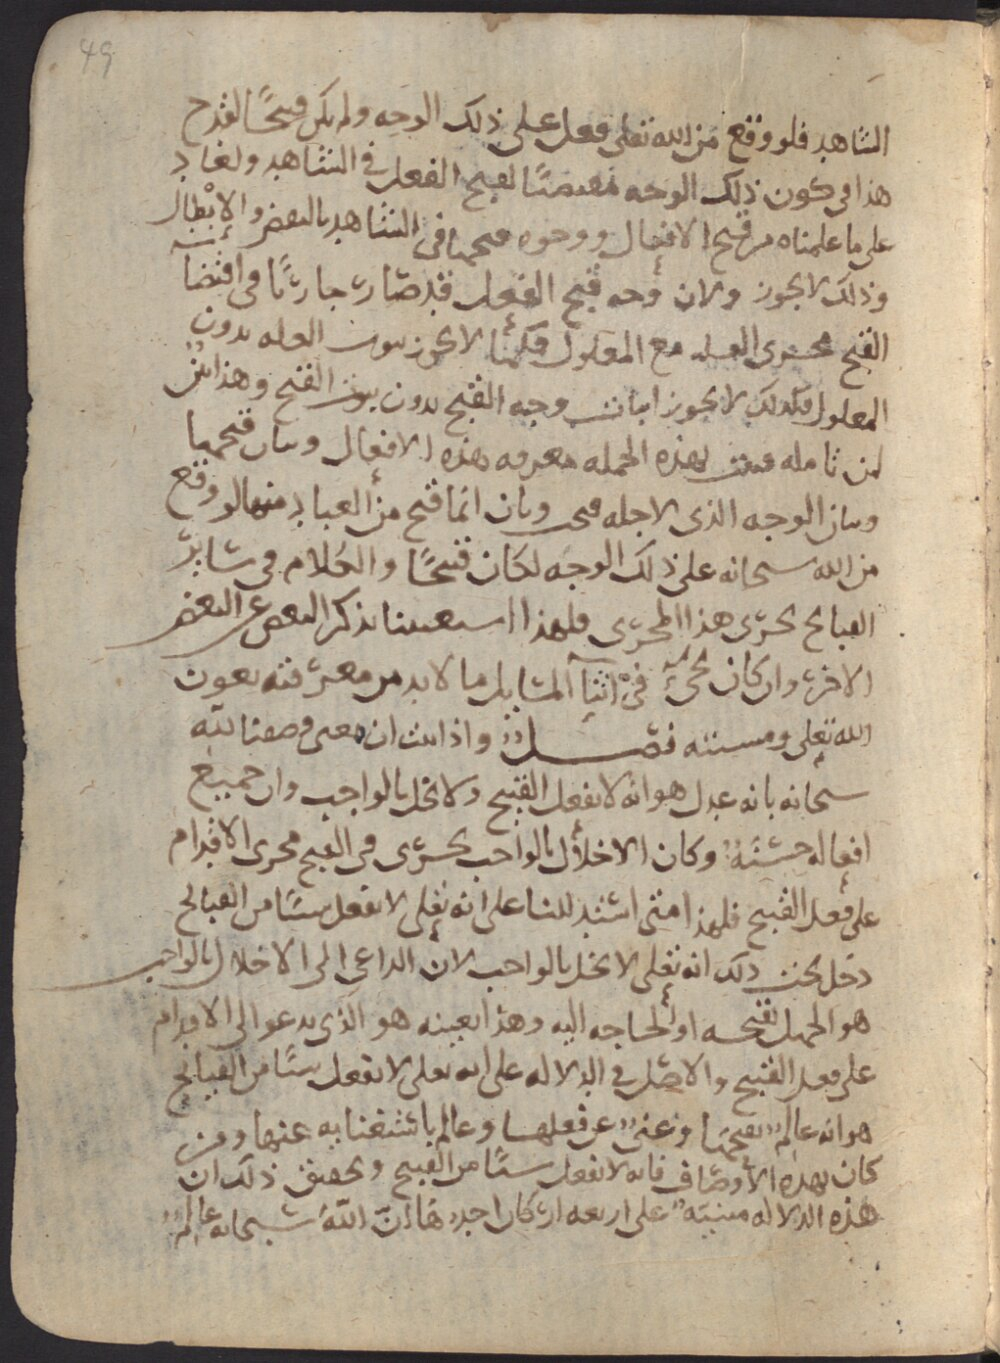 49
الشاهد فلو وقع من الله تعلى فعل على ذلك الوجه ولم يكن قبيحًا لقدح
هذا في كون ذلك الوجه مقتضيًا لقبح الفعل في الشاهد ولعاد
على ما علمناه من قبح الافعال ووجوه قبحها في الشاهد بالنقض والإبطال
وذلك لا يجوز ولان وجه قبح الفعل قد صار جاريًا في اقتضائه
القبح مجرى العلة مع المعلول فكما لا يجوز ثبوت العله بدون
المعلول فكذلك لا يجوز اثبات وجه القبح بدون ثبوت القبح وهذا بيّن
لمن تأمله فثبت بهذه الجمله معرفه هذه الافعال وبيان قبحها
وبيان الوجه الذي لاجله قبحت وبان انما قبح من العباد منها لو وقع
من الله سبحانه على ذلك الوجه لكان قبيحًا والكلام في سائر
القبايح يجرى هذا المجرى فلهذا استغنينا بذكر البعض عن البعض
الاخر وان كان يجيء في اثناء المسايل ما لا بد من معرفته بعون
الله تعلى ومشيته فصل واذا ثبت ان معنى وصفنا لله
سبحانه بانه عدل هو انه لا يفعل القبيح ولا يخل بالواجب وان جميع
افعاله حسنة وكان الاخلال بالواجب يجرى في القبح مجرى الاقدام
على فعل القبيح فلهذا متى استدللنا على انه تعلى لا يفعل شيئًا من القبائح
دخل تحت ذلك انه تعلى لا يخل بالواجب لان الداعي الى الاخلال بالواجب
هو الجهل بقبحه او الحاجه اليه وهذا بعينه هو الذي يدعو الى الاقدام
على فعل القبيح والاصل في الدلاله على انه تعلى لا يفعل شيئًا من القبائح
هو انه عالم بقبحها وغنيٌ عن فعلها وعالم باستغنايه عنها ومن
كان بهذه الأوصاف فانه لا يفعل شيئًا من القبيح وتحقيق ذلك ان
هذه الدلاله مبنيه على اربعه اركان احدها ان الله سبحانه عالم